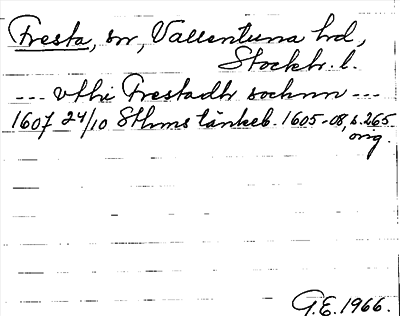 Fresta, sn, Vallentuna hd,
Stockh. l.
--- vthi Frestadh sochnn ---
1607 24/10 Sthms tänkeb. 1605-08, s. 265.
orig.
G.E. 1966.